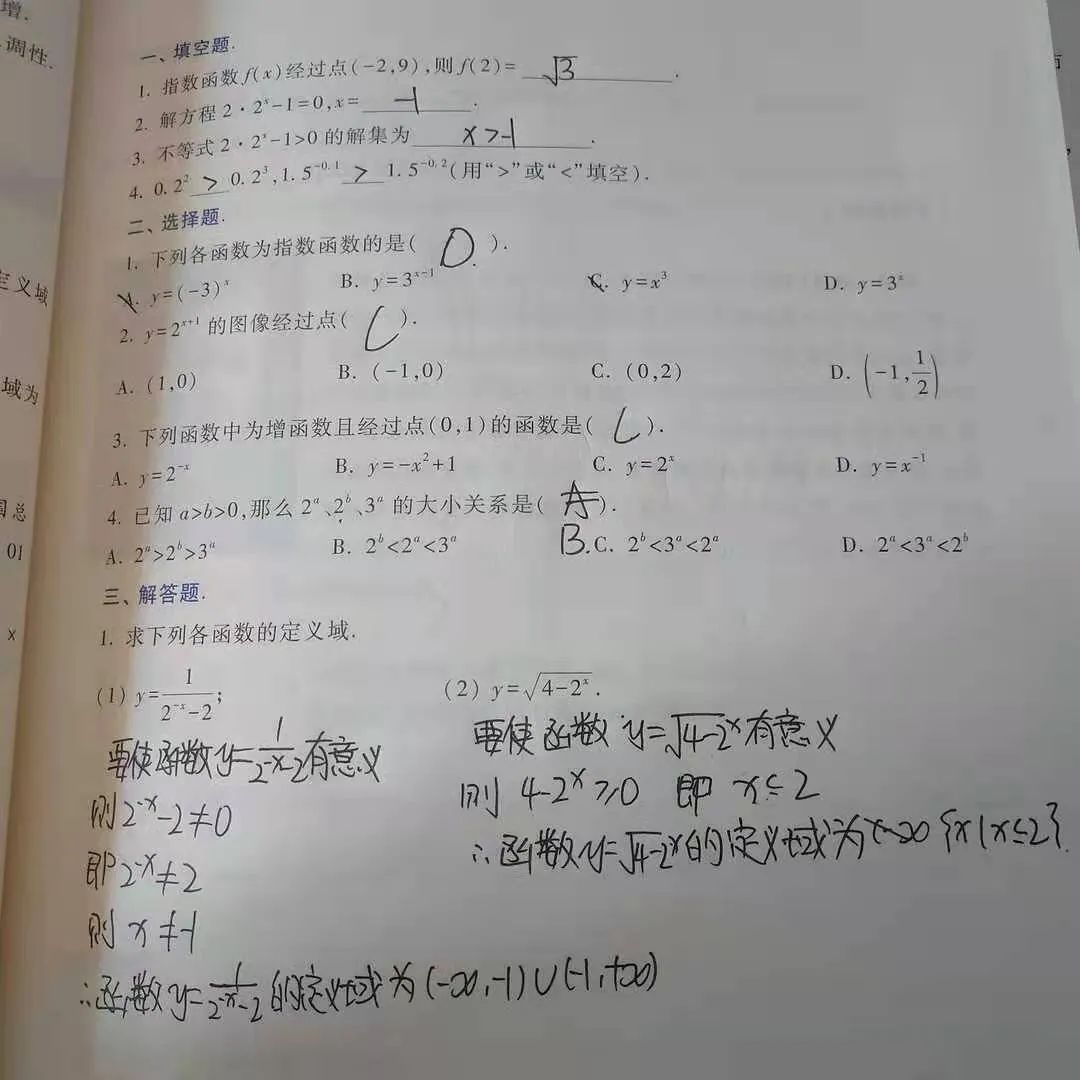 增.
调性.
定义域
域为
国总
01
x
一、填空题.
1. 指数函数f(x)经过点(-2,9),则f(2)= √3 .
2. 解方程 2·2ˣ-1=0,x= -1 .
3. 不等式 2·2ˣ-1>0 的解集为 x>-1 .
4. 0.2² > 0.2³,1.5⁻⁰·¹ > 1.5⁻⁰·²(用“>”或“<”填空).
二、选择题.
1. 下列各函数为指数函数的是( D ).
A. y=(-3)ˣ B. y=3ˣ⁻¹ C. y=x³ D. y=3ˣ
2. y=2ˣ⁺¹ 的图像经过点( C ).
A. (1,0) B. (-1,0) C. (0,2) D. (-1,1/2)
3. 下列函数中为增函数且经过点(0,1)的函数是( C ).
A. y=2⁻ˣ B. y=-x²+1 C. y=2ˣ D. y=x⁻¹
4. 已知 a>b>0,那么 2ᵃ、2ᵇ、3ᵃ 的大小关系是( A ).
B.
A. 2ᵃ>2ᵇ>3ᵃ B. 2ᵇ<2ᵃ<3ᵃ C. 2ᵇ<3ᵃ<2ᵃ D. 2ᵃ<3ᵃ<2ᵇ
三、解答题.
1. 求下列各函数的定义域.
(1) y=1/(2⁻ˣ-2); (2) y=√(4-2ˣ).
要使函数y=1/(2⁻ˣ-2)有意义
则2⁻ˣ-2≠0
即2⁻ˣ≠2
则 x≠-1
∴函数y=1/(2⁻ˣ-2)的定义域为(-∞,-1)∪(-1,+∞)
要使函数y=√(4-2ˣ)有意义
则 4-2ˣ≥0 即 x≤2
∴函数y=√(4-2ˣ)的定义域为 {x|x≤2}.